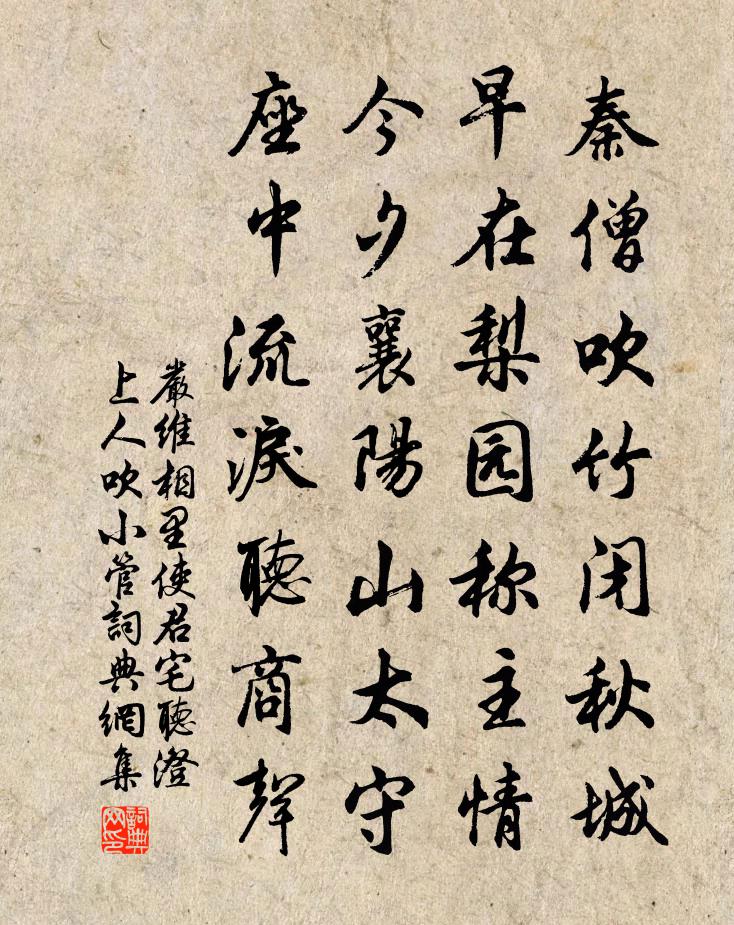 秦僧吹竹闭秋城
早在梨园称主情
今夕襄陽山太守
座中流淚聽商聲
嚴維相里使君宅聽澄
上人吹小管詞典網集
詞典网印